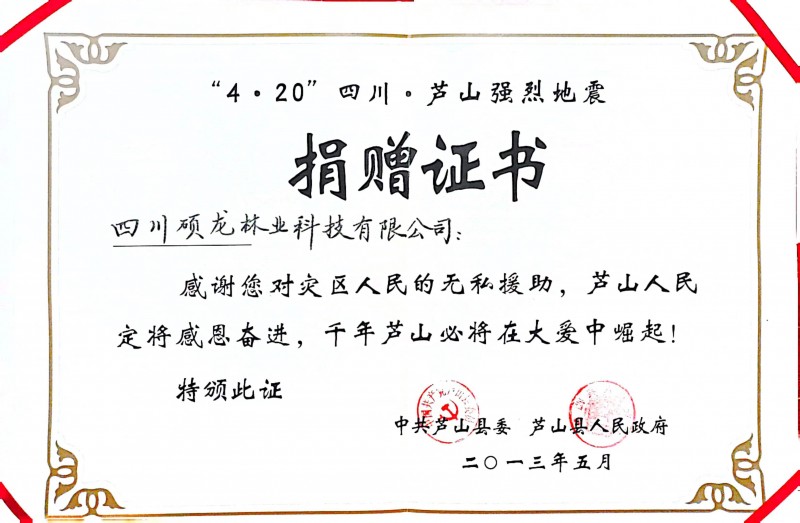 “4·20”四川·芦山强烈地震
捐赠证书
四川硕龙林业科技有限公司:
感谢您对灾区人民的无私援助，芦山人民
定将感恩奋进，千年芦山必将在大爱中崛起！
特颁此证
中共芦山县委 芦山县人民政府
二〇一三年五月